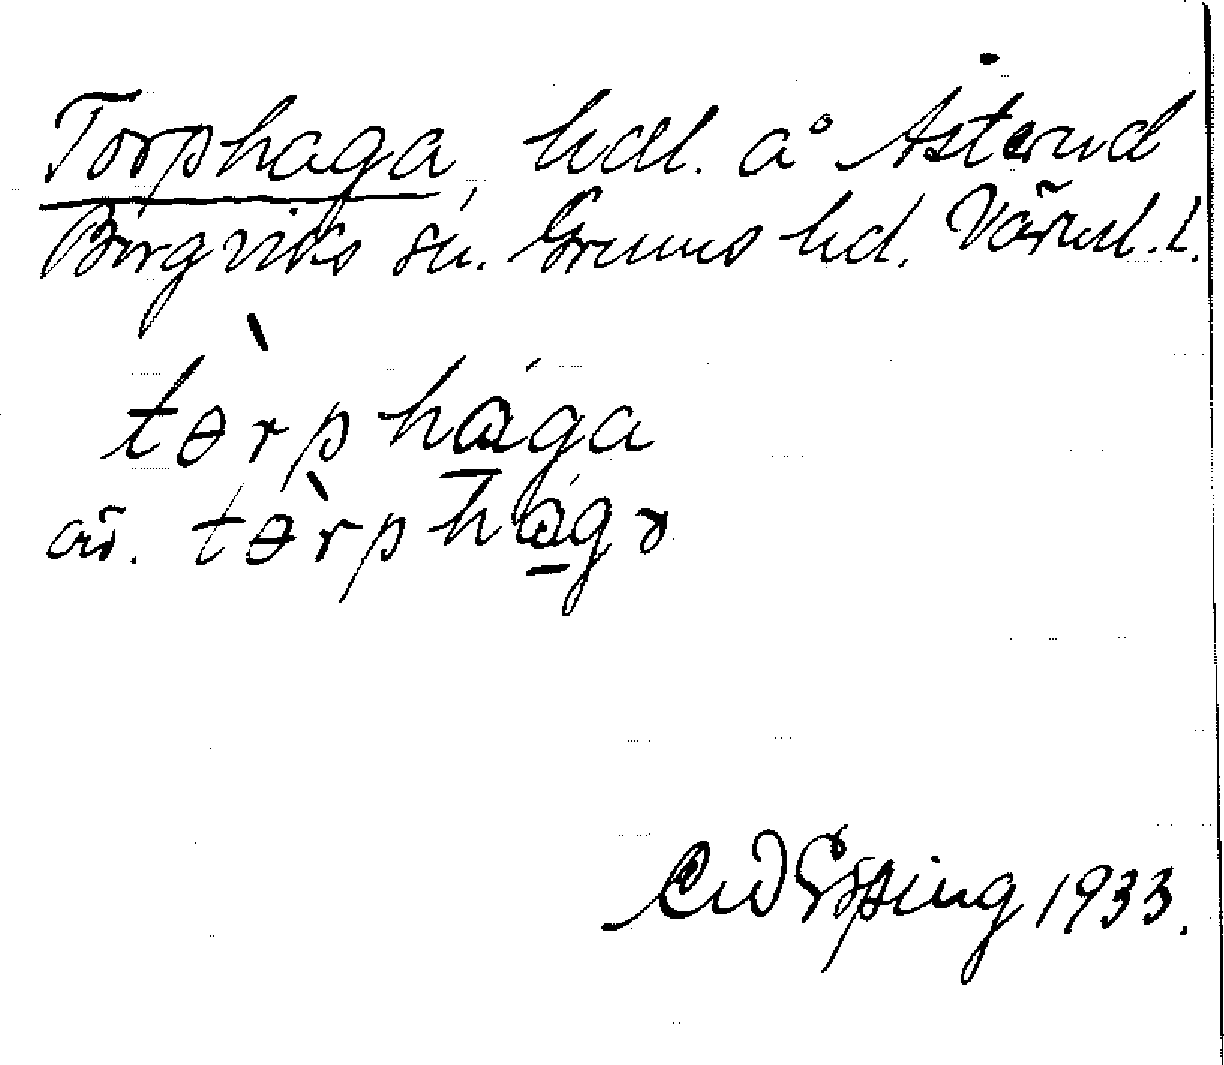 Torphaga, hdl. å Åsterud
Borgviks sn. Grums hd. Värml. l.
tɵ̀rphága
äv. tɵ̀rphágɤ
1933.